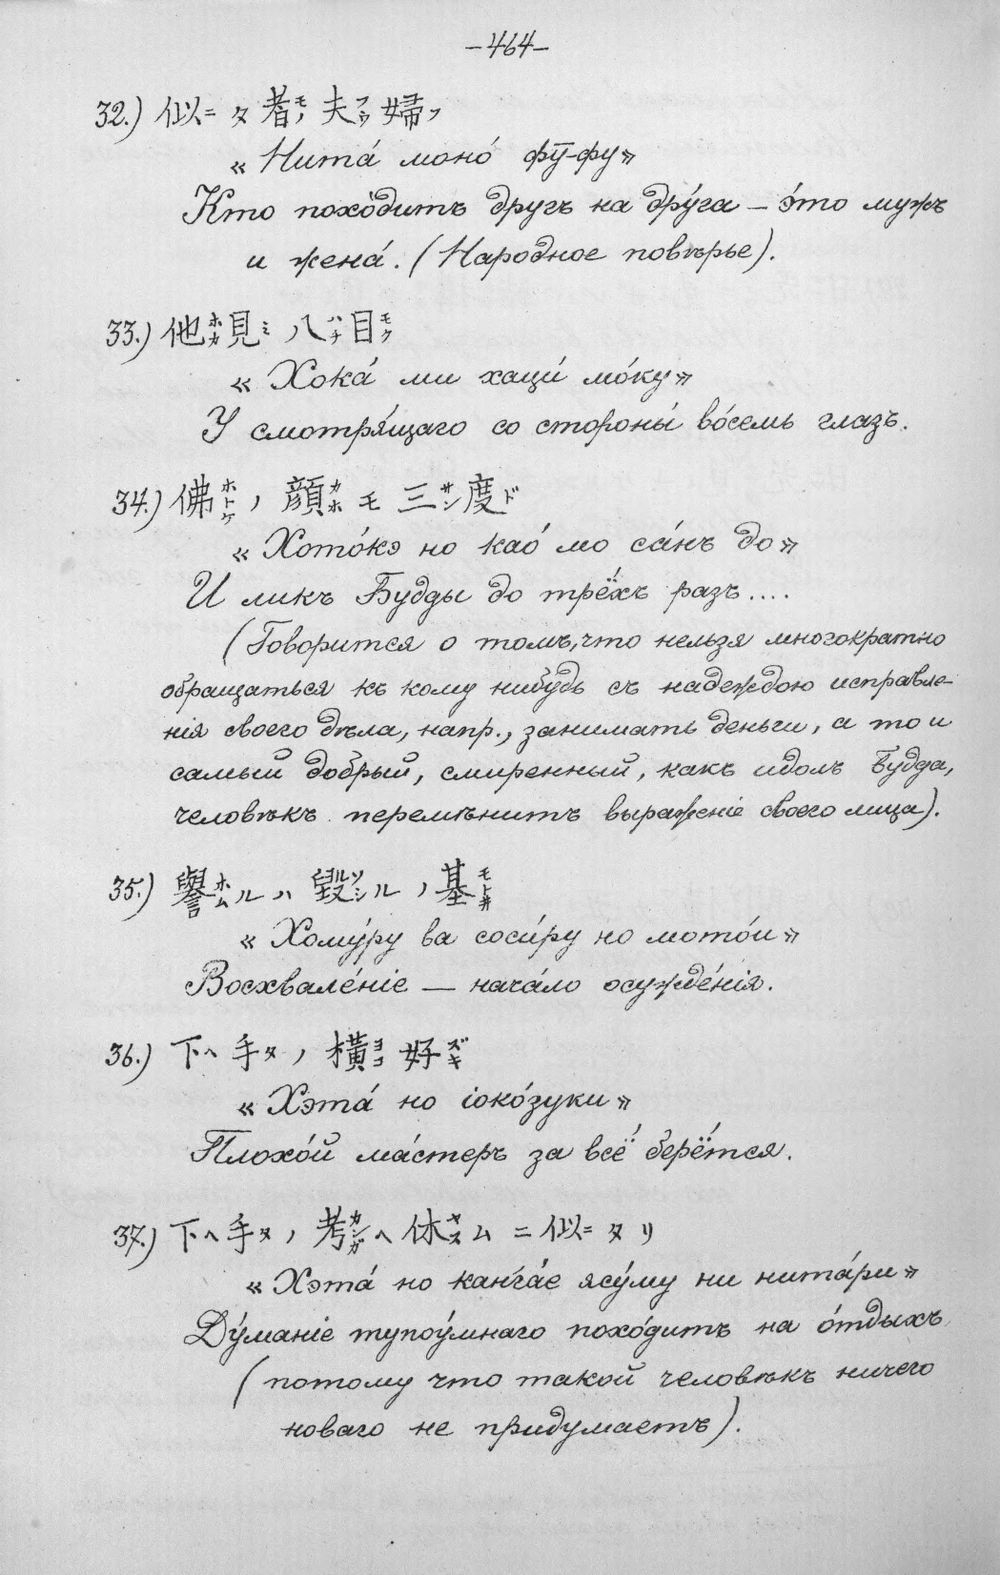 -464-
32.) 似ニタ者モノ夫フウ婦フ
«Нита́ моно́ фӯ-фу»
Кто похо́дитъ другъ на дру́га — э́то мужъ
и жена́. (Народное повѣрье).
33.) 他ホカ見ミ八ハチ目モク
«Хока́ ми хаци́ мо́ку»
У смотря́щаго со стороны́ во́семь глазъ.
34.) 佛ホトケノ顔カホモ三サン度ド
«Хото́кэ но као́ мо са́нъ до»
И ликъ Будды до трёхъ разъ....
(Говорится о томъ, что нельзя многократно
обращаться къ кому нибудь съ надеждою исправле-
нія своего дѣла, напр., занимать деньги, а то и
самый добрый, смиренный, какъ идолъ Будда,
человѣкъ перемѣнитъ выраженіе своего лица).
35.) 譽ホムルハ毀ソシルルノ基モトヰ
«Хому́ру ва соси́ру но мото́и»
Восхвале́ніе — нача́ло осужде́нія.
36.) 下ヘ手タノ横ヨコ好ズキ
«Хэта́ но іоко́зуки»
Плохо́й ма́стеръ за всё берётся.
37.) 下ヘ手タノ考カンガヘ休ヤスムニ似ニタリ
«Хэта́ но канга́е ясу́му ни нита́ри»
Ду́маніе тупоу́мнаго похо́дитъ на о́тдыхъ
(потому что такой человѣкъ ничего
новаго не придумаетъ).